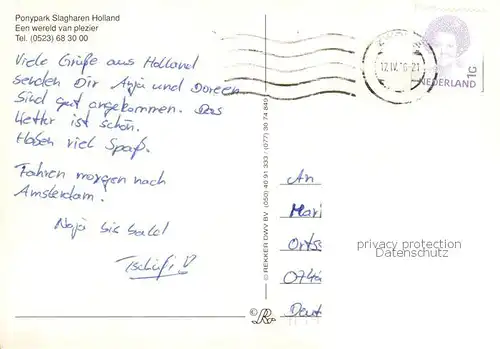 Ponypark Slagharen Holland
Een wereld van plezier
Tel. (0523) 68 30 00
Viele Grüße aus Holland
senden Dir Anja und Doreen
Sind gut angekommen. Das
Wetter ist schön.
Haben viel Spaß.
Fahren morgen nach
Amsterdam.
Naja bis bald
Tschüßi
© REKKER DWV BV. (050) 40 91 333 / (077) 30 74 949
NEDERLAND
1G
An
Mari
Orts
074
Deut
privacy protection
Datenschutz